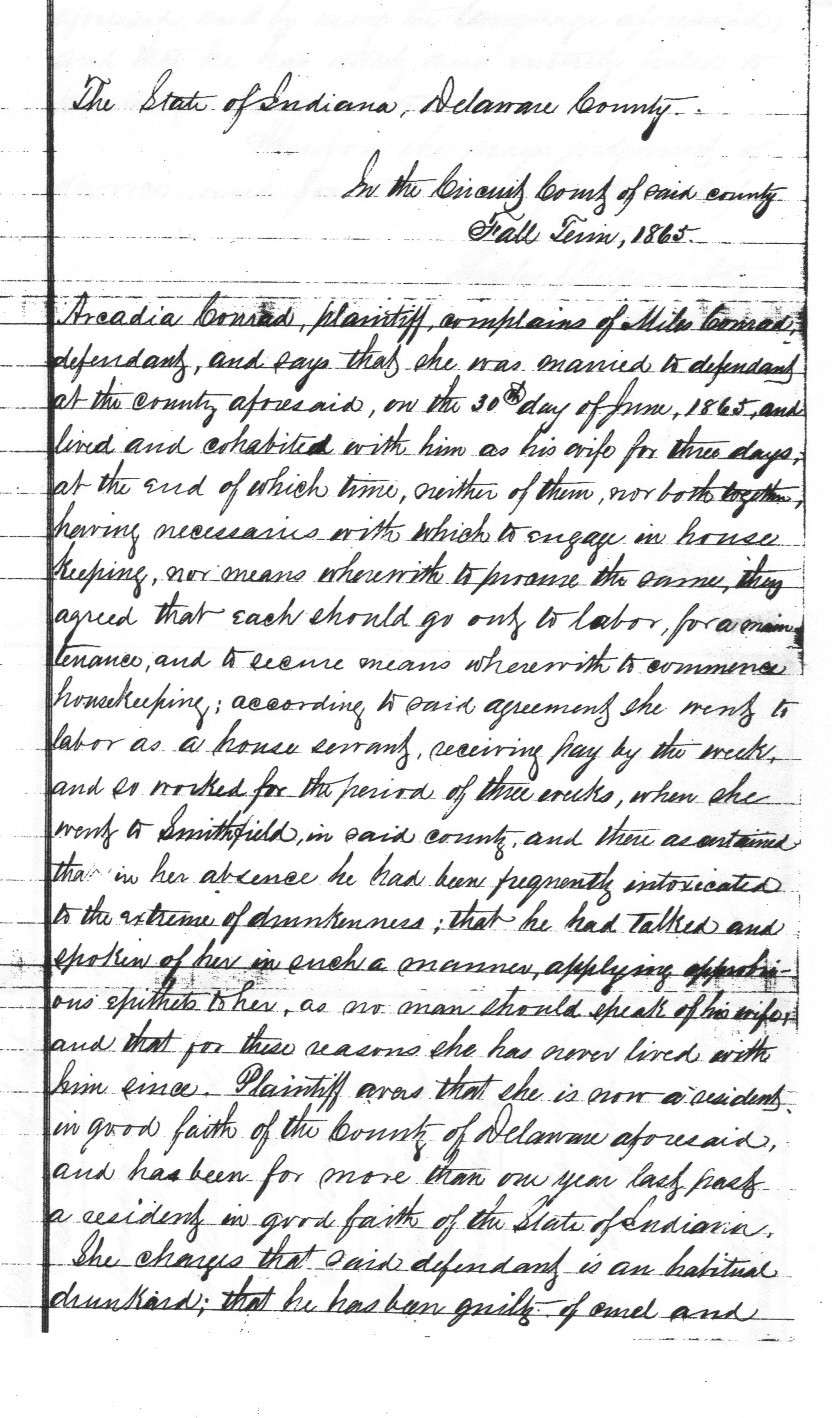 The State of Indiana, Delaware County.
In the Circuit Court of said county
Fall Term, 1865.
Arcadia Conrad, plaintiff, complains of Miles Conrad,
defendant, and says that she was married to defendant
at the county aforesaid, on the 30th day of June, 1865, and
lived and cohabited with him as his wife for three days;
at the end of which time, neither of them, nor both together,
having necessaries with which to engage in house
keeping, nor means wherewith to procure the same, they
agreed that each should go out to labor, for a main-
tenance, and to secure means wherewith to commence
housekeeping; according to said agreement she went to
labor as a house servant, receiving pay by the week,
and so worked for the period of three weeks, when she
went to Smithfield, in said county, and there ascertained
that in her absence he had been frequently intoxicated
to the extreme of drunkenness; that he had talked and
spoken of her in such a manner, applying opprobri-
ous epithets to her, as no man should speak of his wife;
and that for these reasons she has never lived with
him since. Plaintiff avers that she is now a resident
in good faith of the County of Delaware aforesaid,
and has been for more than one year last past
a resident in good faith of the State of Indiana.
She charges that said defendant is an habitual
drunkard; that he has been guilty of cruel and